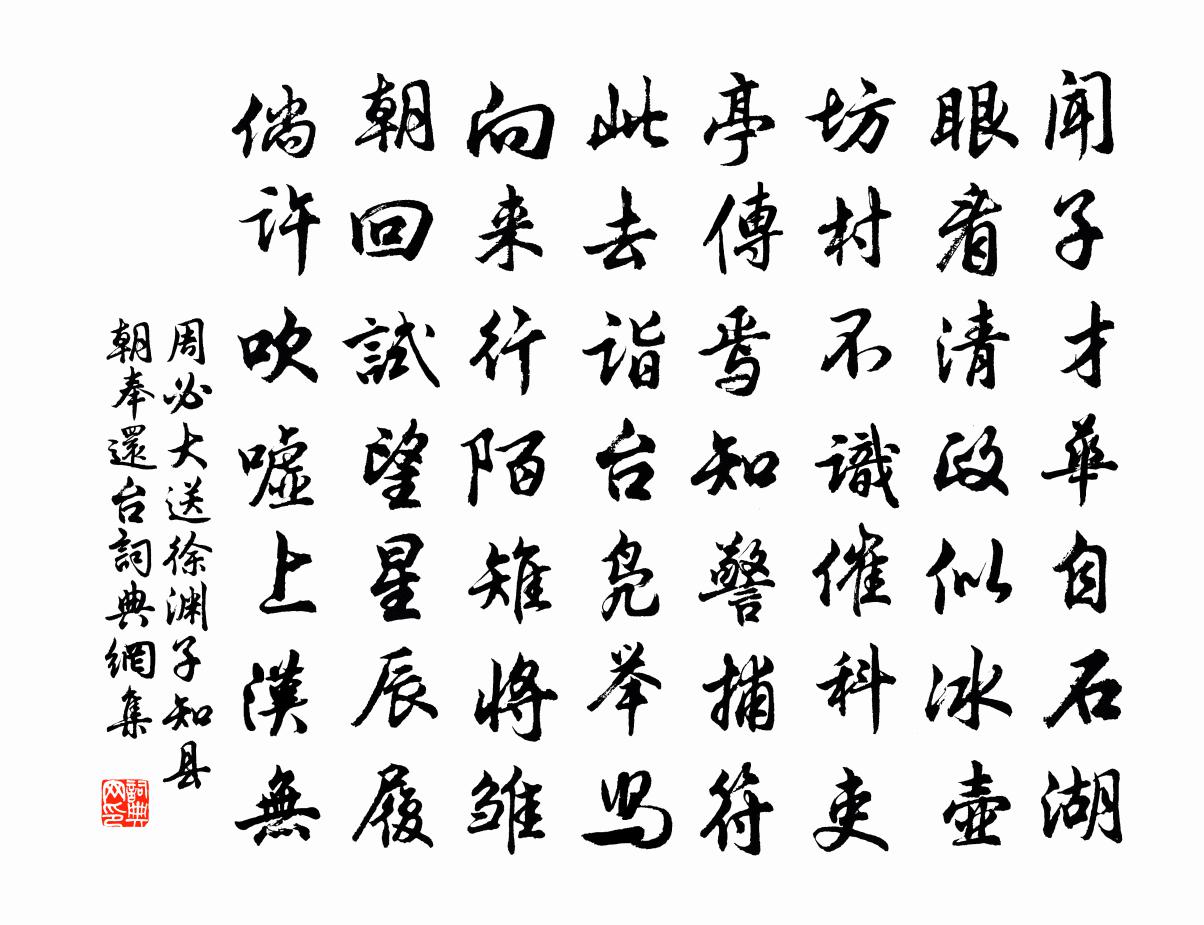 闻子才華自石湖
眼看清政似冰壶
坊村不識催科吏
亭傳焉知警捕符
此去詣台凫举舄
向来行陌雉将雏
朝回試望星辰履
倘许吹嘘上漢無
周必大送徐渊子知县
朝奉還台詞典網集
詞典